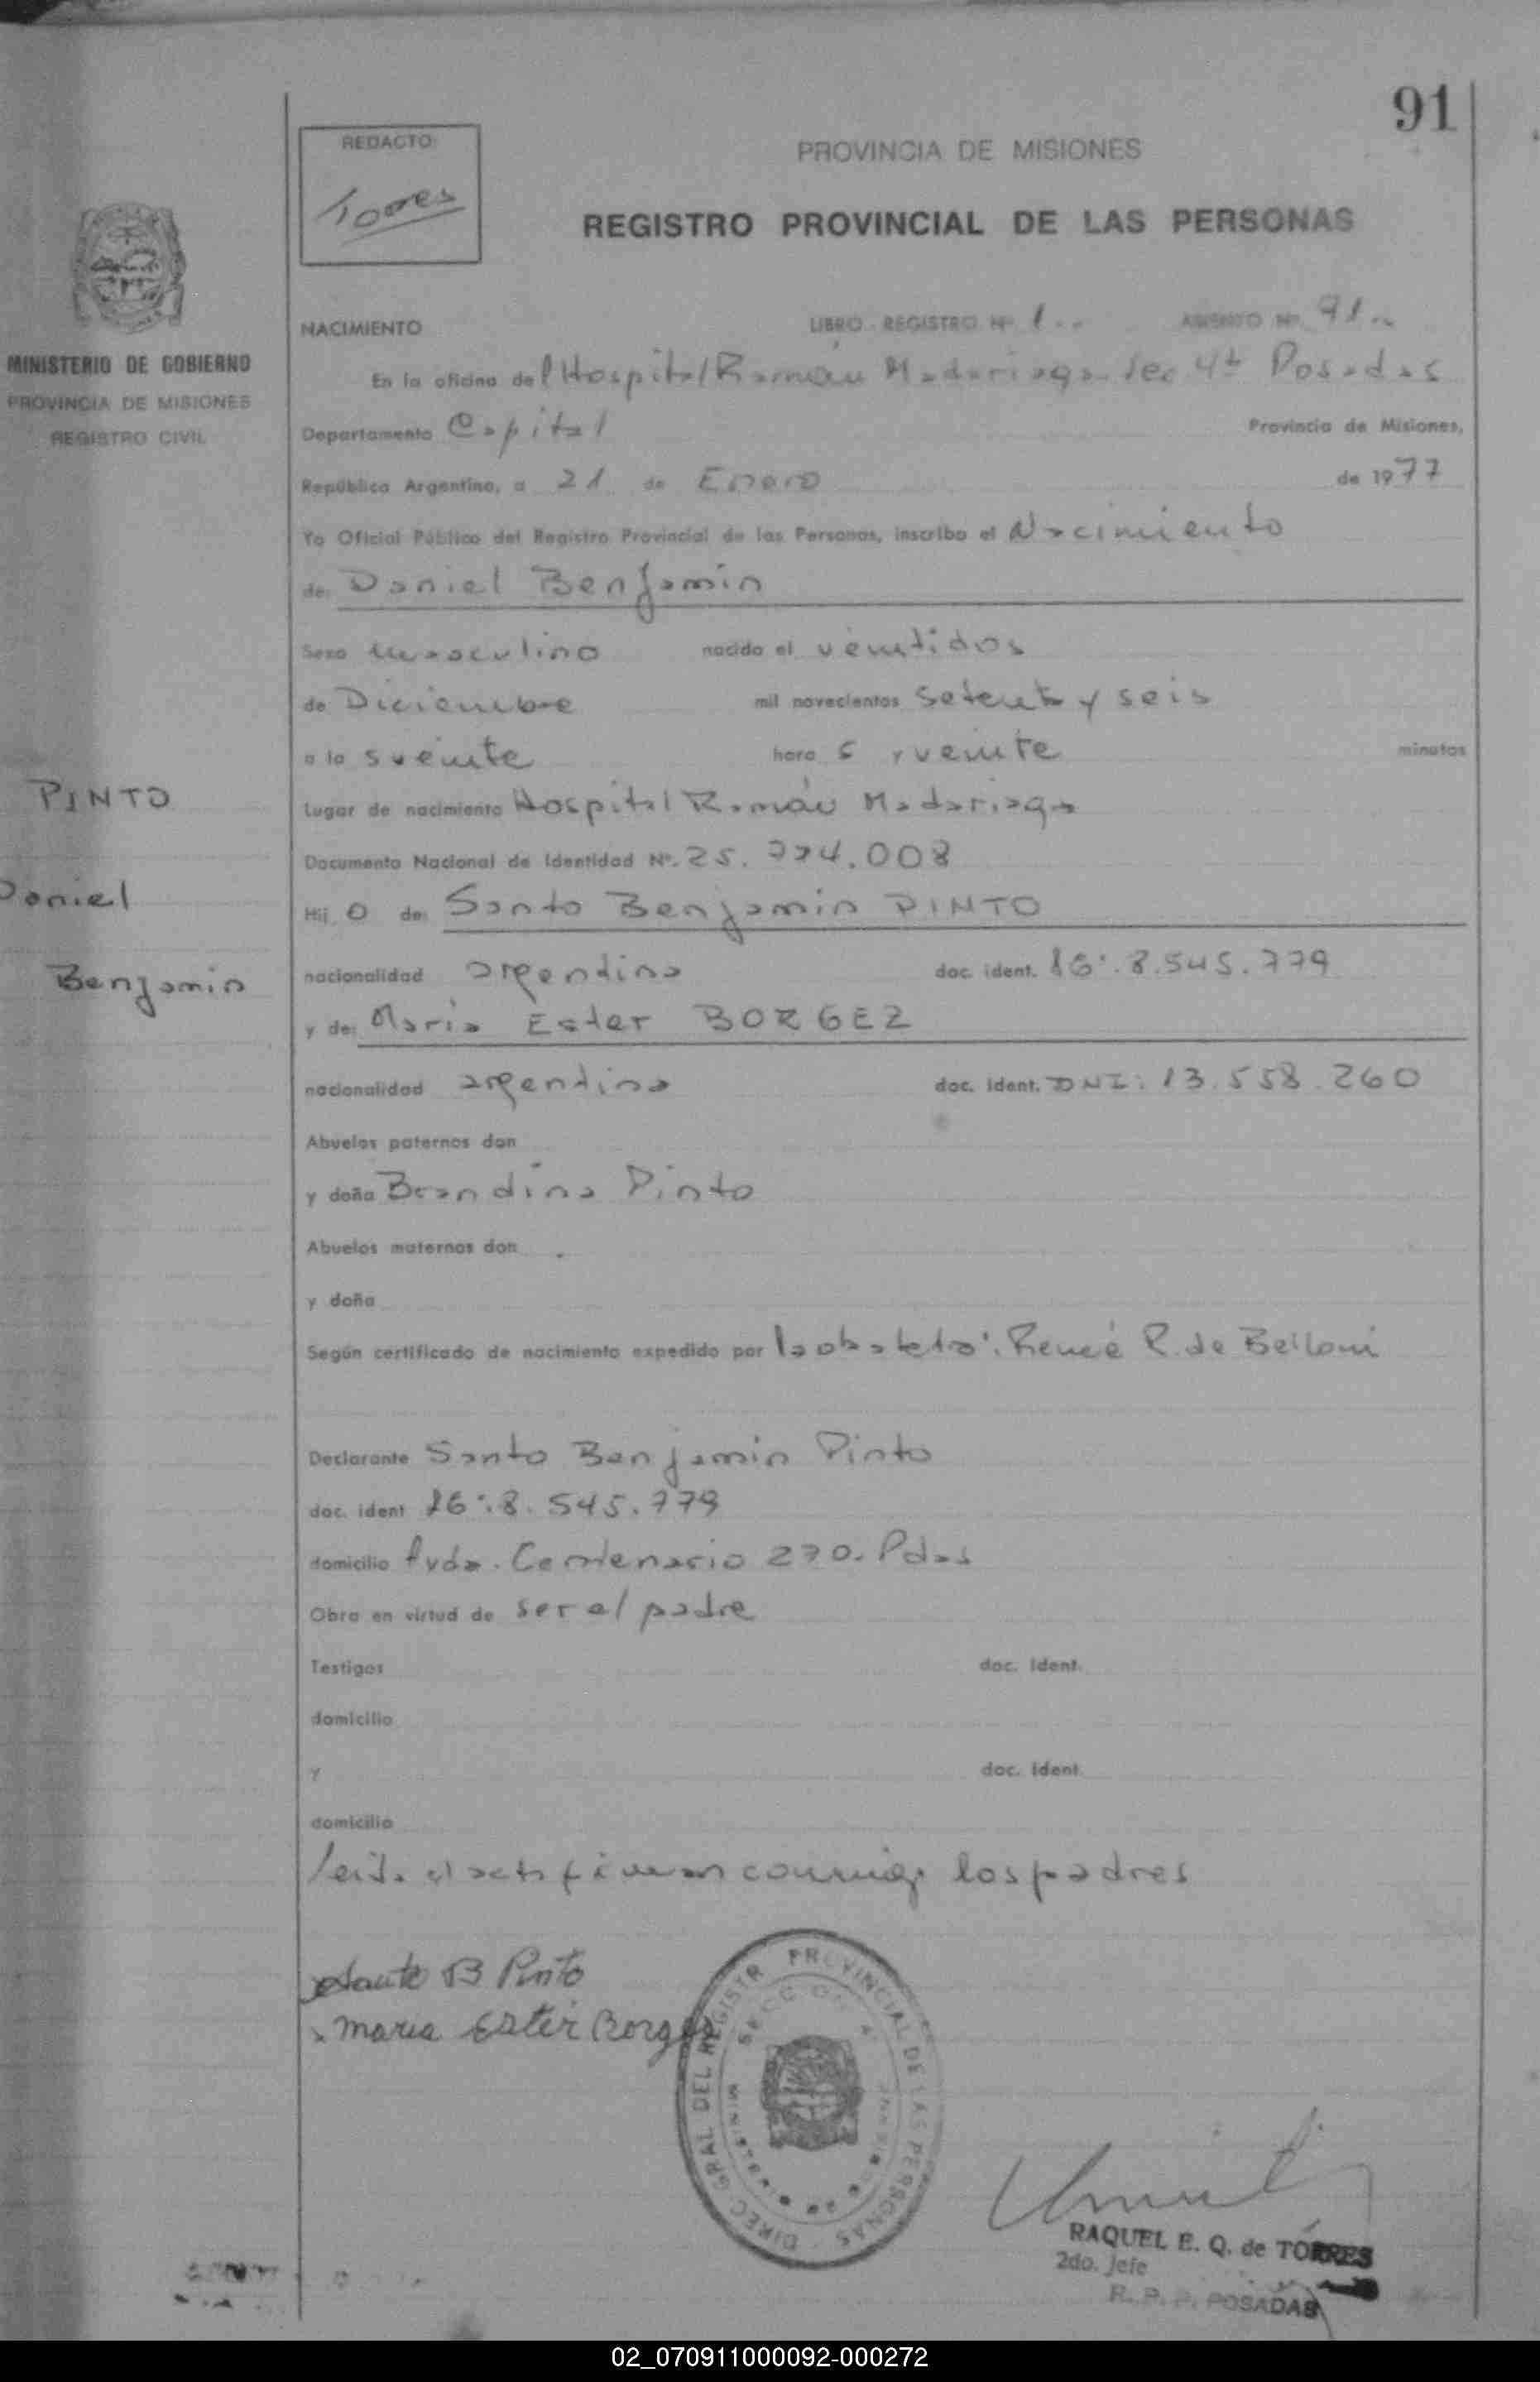 91
REDACTO:
Torres
PROVINCIA DE MISIONES
REGISTRO PROVINCIAL DE LAS PERSONAS
MINISTERIO DE GOBIERNO
PROVINCIA DE MISIONES
REGISTRO CIVIL
NACIMIENTO LIBRO - REGISTRO Nº 1.. ASIENTO Nº 91..
En la oficina del Hospital Román Madariaga Sec 4ta Posadas
Departamento Capital Provincia de Misiones,
República Argentina, a 21 de Enero de 1977
Yo Oficial Público del Registro Provincial de las Personas, inscribo el Nacimiento
de: Daniel Benjamin
Sexo masculino nacido el veintidos
de Diciembre mil novecientos setenta y seis
a la s veinte hora s y veinte minutos
PINTO
Lugar de nacimiento Hospital Román Madariaga
Documento Nacional de Identidad Nº. 25.774.008
Daniel
Hij o de: Santo Benjamin PINTO
Benjamin
nacionalidad argentina doc. ident. 8.545.779
y de: Maria Ester BORGEZ
nacionalidad argentina doc. ident. DNI: 13.558.260
Abuelos paternos don
y doña Brandina Pinto
Abuelos maternos don
y doña
Según certificado de nacimiento expedido por la obstetra: Reneé R. de Belloni
Declarante Santo Benjamin Pinto
doc. ident 8.545.779
domicilio Avda. Centenario 270. Pdas
Obra en virtud de ser el padre
Testigos doc. ident.
domicilio
y doc. ident.
domicilio
leida el acta firman conmigo los padres
Santo B Pinto
x maria Ester Borgez
DIREC GRAL DEL REGISTR PROVINCIAL DE LAS PERSONAS
RAQUEL E. Q. de TORRES
2do. Jefe
R. P. P. POSADAS
02_070911000092-000272